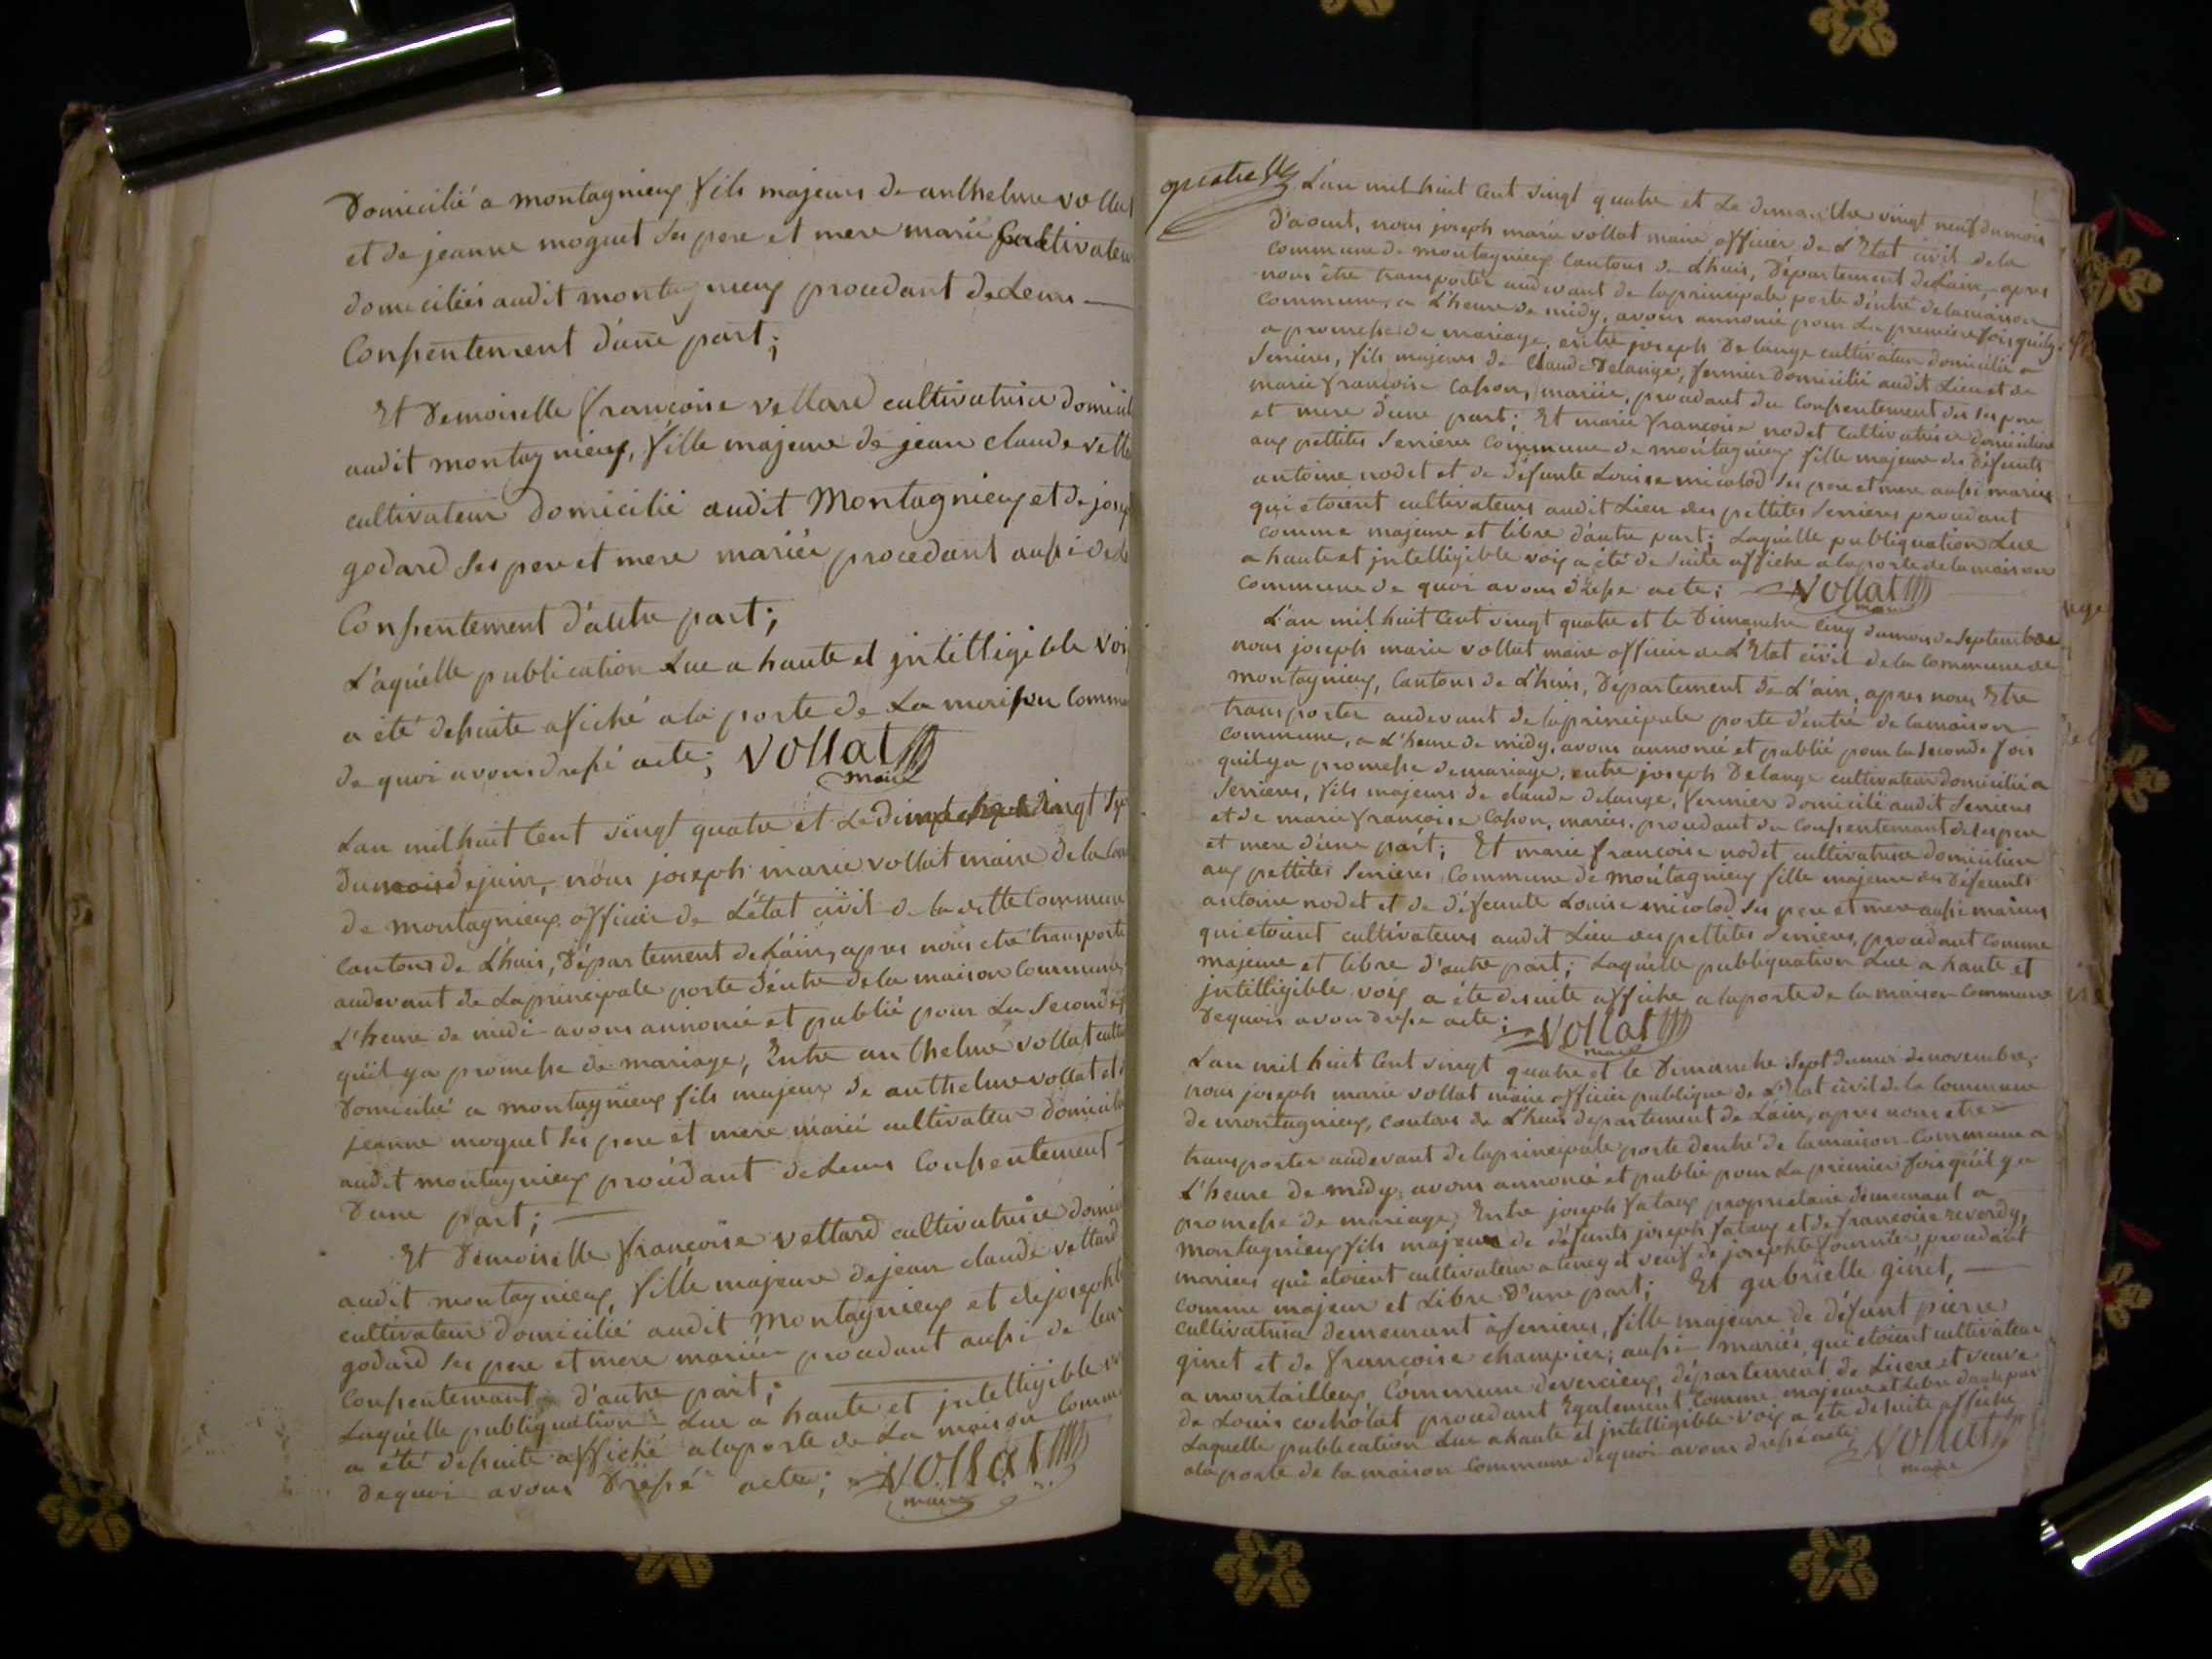 Domicilié a montagnieux fils majeurs de anthelme vollat
et de jeanne moguet ses pere et mere marié Cultivateur
domiciliés audit montagnieux procedant de Leur
Consentement d'une part;
Et Demoiselle françoise vettard cultivatrice domicil
audit montagnieux, fille majeure de jean claude vetta
cultivateur domicilié audit Montagnieux et de josep
godard ses pere et mere mariée procedant aussi de le
Consentement d'autre part;
L'aquélle publication Lue a haute et jntelligible voix
a été desuite afiché a la porte de La maison Comm
de quoi avons dressé acte; Vollat
maire
Lan mil huit Cent vingt quatre et Le dimanche vingt sep
du mois de juin, nous joseph marie vollat maire de la Com
de montagnieux officier de L'état civil de la ditte Commune
cantons de Lhuis, Département de L'ain, apres nous etre transporté
audevant de La principale porte d'entre de la maison Commune,
L'heure de midi avons annoncé et publié pour La Seconde f
qu'il ya promesse de mariage, Entre anthelme vollat cultiv
Domicilié a montagnieux fils majeur de anthelme vollat et
jeanne moguet ses pere et mere marié cultivateur domicil
audit montagnieux procédant de Leurs Consentement
D'une part;
Et Demoiselle françoise vettard cultivatrice domici
audit montagnieux, fille majeure de jean claude vettard
cultivateur domicilié audit Montagnieux et de joseph
godard ses pere et mere mariée procedant aussi de leur
Consentemant d'autre part;
Laquélle publiquation Lue a haute et jntelligible vo
a été desuite affiché a la porte de La maison Comm
de quoi avons Dressé acte; Vollat
maire
quatre
L'an mil huit Cent vingt quatre et Le dimanche vingt neuf du mois
d'aoust, nous joseph marie vollat maire officier de L'Etat civil de la
Commune de montagnieux Cantons de Lhuis, Département de Lain, apres
nous être transporter audevant de la principale porte d'entré de la maison
Commune, a L'heure de midy, avons annoncé pour La premiere fois qu'il y
a promesse de mariage, entre joseph De lange cultivateur domicilié a
Serrieres, fils majeurs de Claude Delange, fermier Domicilié audit Lieu et de
marie françoise Casson, mariée, procedant du Consentement des ses pere
et mere d'une part; Et marie françoise nodet Cultivatrice domiciliée
aux pettites Serrieres Commune de montagnieux fille majeure des Défunts
antoine nodet et de défunte Louise micolod ses pere et mere aussi mariés
qui etoient cultivateurs audit Lieu des pettites Serrieres procedant
Comme majeure et libre d'autre part; Laquélle publiquation Lue
a haute et jntelligible voix a été de suite affiche a la porte de la maison
Commune de quoi avons dressé acte; Vollat
maire
L'an mil huit Cent vingt quatre et le Dimanche Cinq du mois de Septembre
nous joseph marie vollat maire officier de L'Etat civil de la Commune de
montagnieux, Cantons de Lhuis, Département de L'ain, apres nous Etre
transporter audevant de la principale porte d'entré de la maison
Commune, a L'heure de midy, avons annoncé et publié pour la seconde fois
qu'il ya promesse de mariage, entre joseph Delange cultivateur domicilié a
Serrieres, fils majeurs de claude delange, fermier domicilié audit Serrieres
et de marie françoise Casson, mariés, procedant du Consentemant de ses pere
et mere d'une part; Et marie françoise nodet cultivatrice domiciliee
aux pettites Serrieres, Commune de montagnieux fille majeure des Défunts
antoine nodet et de défeunte Louise micolod ses pere et mere aussi mariés
qui etoient cultivateurs audit Lieu des pettites Serrieres, procedant Comme
majeure et libre d'autre part; Laquélle publiquation Lue a haute et
jntelligible voix a été desuite affiche a la porte de la maison Commune
De quoi avon dresse acte; Vollat
maire
Lan mil huit Cent vingt quatre et le Dimanche Sept du mois de novembre,
nous joseph marie vollat maire officier publique de L'Etat civil de la Commune
de montagnieux, cantons de Lhuis departement de L'ain, apres nous etre
transporter audevant de la principale porte d'entré de la maison Commune a
L'heure de midy, avons annoncé et publié pour La premier fois qu'il y a
promesse de mariage, Entre joseph fataux proprietaire demeurant a
Montagnieux fils majeur de défunts joseph fataux et de françoise reverdy,
mariés qui etoient cultivateur a lency et veuf de josephte fournier, procedant
Comme majeur et Libre d'une part; Et gabrielle ginet,
Cultivatrice demeurant a Serrieres, fille majeure de défunt pierre
ginet et de françoise champier, aussi mariés, qui etoient cultivateur
a montailleux, Commune de vercieux, département de Lisere et veuve
de Louis cochotat procedant Egalement Comme majeure et Libre d'autre part
Laquelle publication Lue a haute et jntelligible voix a été de suite affiche
a la porte de la maison Commune de quoi avons dressé acte Vollat
maire